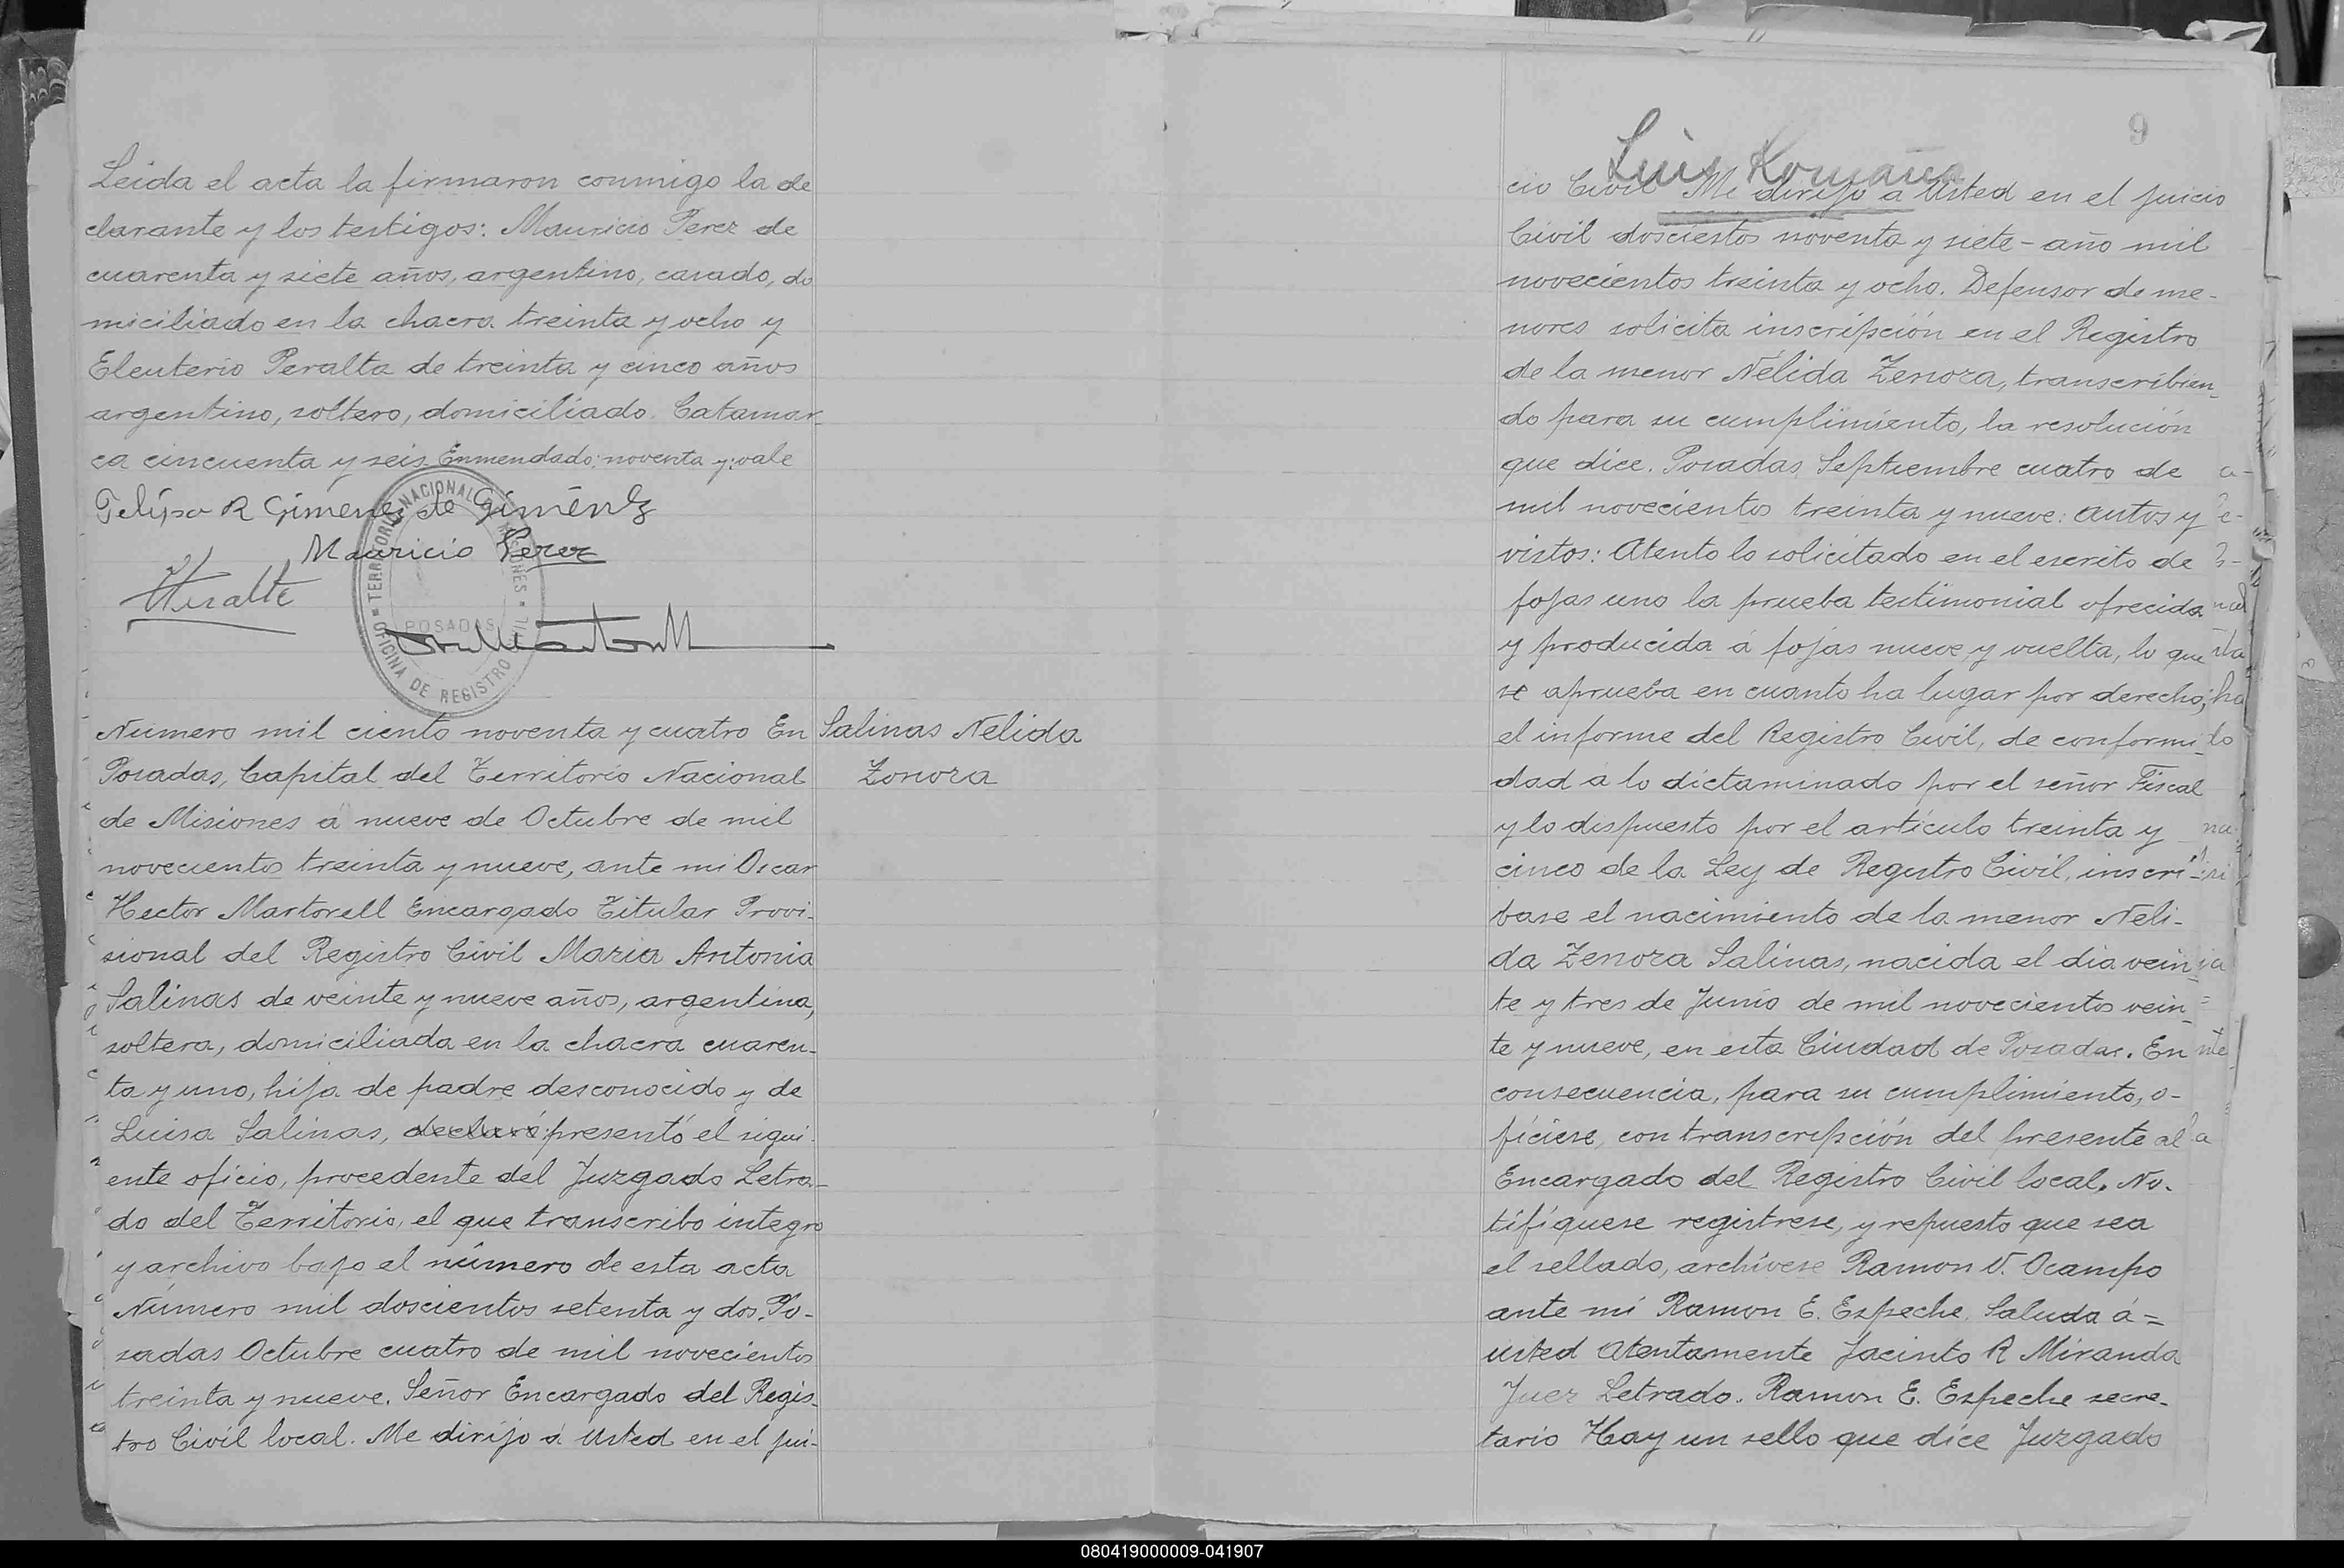 Leida el acta la firmaron conmigo la de
clarante y los testigos: Mauricio Perez de
cuarenta y siete años, argentino, casado, do
miciliado en la chacra treinta y ocho y
Eleuterio Peralta de treinta y cinco años
argentino, soltero, domiciliado Catamar-
ca cincuenta y seis. Enmendado: noventa y: vale
Felipa R Gimenez de Giménez
Mauricio Perez
EPeralta
TERRITORIO NACIONAL DE MISIONES
POSADAS
OFICINA DE REGISTRO CIVIL
Número mil ciento noventa y cuatro En
Posadas, Capital del Territorio Nacional
de Misiones a nueve de Octubre de mil
novecientos treinta y nueve, ante mi Oscar
Hector Martorell Encargado Titular Provi-
sional del Registro Civil Maria Antonia
Salinas de veinte y nueve años, argentina,
soltera, domiciliada en la chacra cuaren-
ta y uno, hija de padre desconocido y de
Luisa Salinas, declaró: presentó el sigui-
ente oficio, procedente del Juzgado Letra-
do del Territorio, el que transcribo integro
y archivo bajo el número de esta acta
Número mil doscientos setenta y dos. Po-
sadas Octubre cuatro de mil novecientos
treinta y nueve. Señor Encargado del Regis-
tro Civil local. Me dirijo á Usted en el jui-
Salinas Nelida
Zonora
9
Luis Romaña
cio Civil Me dirijo a Usted en el juicio
Civil doscientos noventa y siete - año mil
novecientos treinta y ocho. Defensor de me-
nores solicita inscripción en el Registro
de la menor Nélida Zenora, transcribien-
do para su cumplimiento, la resolución
que dice. Posadas, Septiembre cuatro de
mil novecientos treinta y nueve: Autos y
vistos: Atento lo solicitado en el escrito de
fojas uno la prueba testimonial ofrecida
y producida á fojas nueve y vuelta, lo que
se aprueba en cuanto ha lugar por derecho;
el informe del Registro Civil, de conformi-
dad a lo dictaminado por el señor Fiscal
y lo dispuesto por el artículo treinta y
cinco de la Ley de Registro Civil, inscri-
base el nacimiento de la menor Neli-
da Zenora Salinas, nacida el dia vein-
te y tres de Junio de mil novecientos vein-
te y nueve, en esta Ciudad de Posadas. En
consecuencia, para su cumplimiento, o-
fíciese, con transcripción del presente al
Encargado del Registro Civil local. No-
tifíquese registrese, y repuesto que sea
el sellado, archívese Ramon V. Ocampo
ante mí Ramon E. Espeche. Saluda á=
usted Atentamente Jacinto R Miranda
Juez Letrado. Ramon E. Espeche secre-
tario Hay un sello que dice Juzgado
080419000009-041907